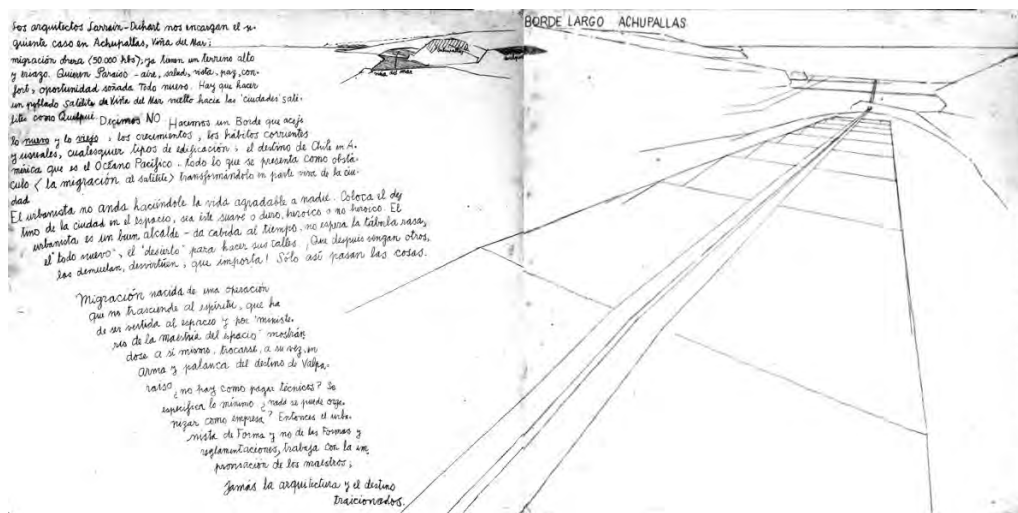 Los arquitectos Larraín-Duhart nos encargan el si-
guiente caso en Achupallas, Viña del Mar;
migración obrera (50.000 hbs); ya tienen un terreno alto
y eriazo. Quieren Paraíso - aire, salud, vista, paz, con-
fort, oportunidad soñada Todo nuevo. Hay que hacer
un poblado satélite de Viña del Mar vuelto hacia las "ciudades" saté-
lites como Quilpué. Decimos NO. Hacemos un Borde que acoja
lo nuevo y lo viejo, los crecimientos, los hábitos corrientes
y usuales, cualesquier tipos de edificación; el destino de Chile en A-
mérica que es el Océano Pacífico. Todo lo que se presenta como obstá-
culo (la migración al satélite) transformándolo en parte viva de la ciu-
dad
El urbanista no anda haciéndole la vida agradable a nadie. Coloca el des
tino de la ciudad en el espacio, sea éste suave o duro, heroico o no heroico. El
urbanista es un buen alcalde - da cabida al tiempo, no espera la tábula rasa,
el "todo nuevo", el "desierto" para hacer sus calles. ¡Que después vengan otros,
las demuelan, desvirtúen, que importa! Sólo así pasan las cosas.
Migración nacida de una operación
que no trasciende al espíritu, que ha
de ser vertida al espacio y por "ministe-
rio de la maestría del espacio" mostrán
dose a sí misma, trocarse, a su vez, en
arma y palanca del destino de Valpa-
raíso ¿no hay como pagar técnicos? Se
especifica lo mínimo ¿nada se puede orga-
nizar como empresa? Entonces el urba-
nista de Forma y no de las Formas y
reglamentaciones, trabaja con la im
provisación de los maestros;
jamás la arquitectura y el destino
traicionados.
viña del mar
BORDE LARGO ACHUPALLAS